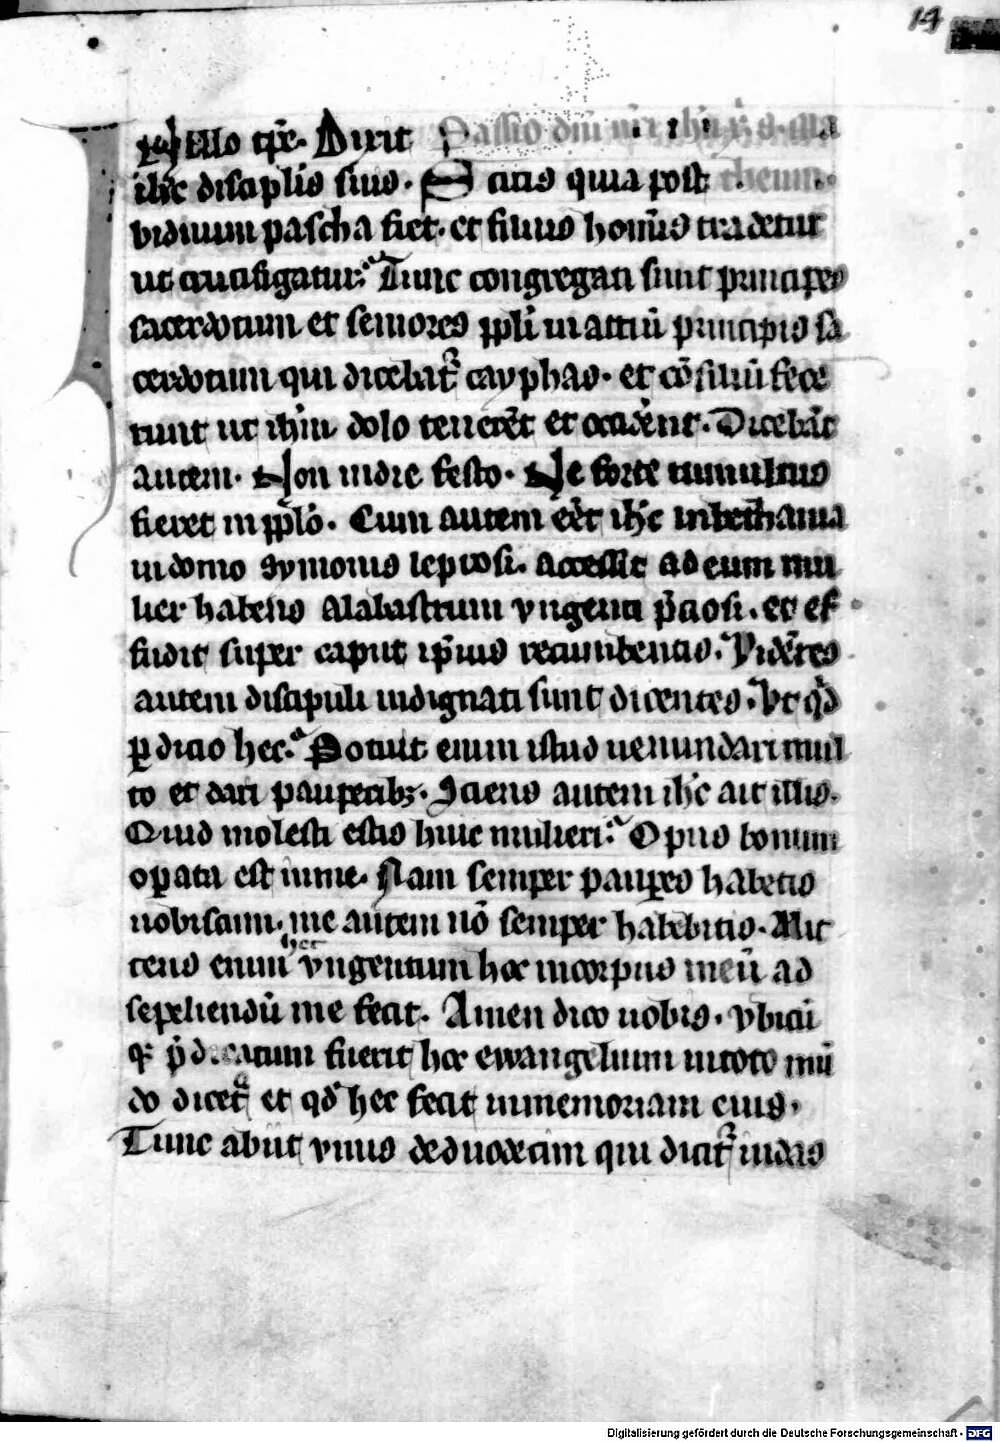 14
IN illo tp̄r. Dixit Passio dn̄i nr̄i ihū xp̄i s. ma
ihc̄ discipl̄is suis. Scitis quia post theum.
biduum pascha fiet. et filius homīs tradetur
ut crucifigatur. Tunc congregati sunt principes
sacerdotum et seniores ppl̄i in atriū principis sa
cerdotum qui dicebat᷑ cayphas. et cōsiliū fece
runt ut ihm̄ dolo tenerēt et occidēnt. Dicebāt
autem. Non indie festo. Ne forte tumultus
fieret in ppl̄o. Cum autem eēt ihc̄ inbethania
indomo symonis leprosi. accessit ad eum mu
lier habens alabastrum vngenti p̄ciosi. et ef
fudit super caput ip̄ius recumbentis. Vidētes
autem discipuli indignati sunt dicentes. Vt qͥd
ꝑditio hec. Potuit enim istud uenundari mul
to et dari pauperibꝫ. Sciens autem ihc̄ ait illis.
Quid molesti estis huic mulieri. Opus bonum
oꝑata est inme. Nam semper pauꝑes habetis
uobiscum. me autem nō semper habebitis. Mit
tens enim hec vngentum hoc incorpus meū ad
sepeliendū me fecit. Amen dico uobis. vbicū
qꝫ p̄dicatum fuerit hoc ewangelium intoto mū
do dicet᷑ et qd̄ hec fecit inmemoriam eius.
Tunc abiit vnus deduodecim qui dicit᷑ iudas
Digitalisierung gefördert durch die Deutsche Forschungsgemeinschaft - DFG